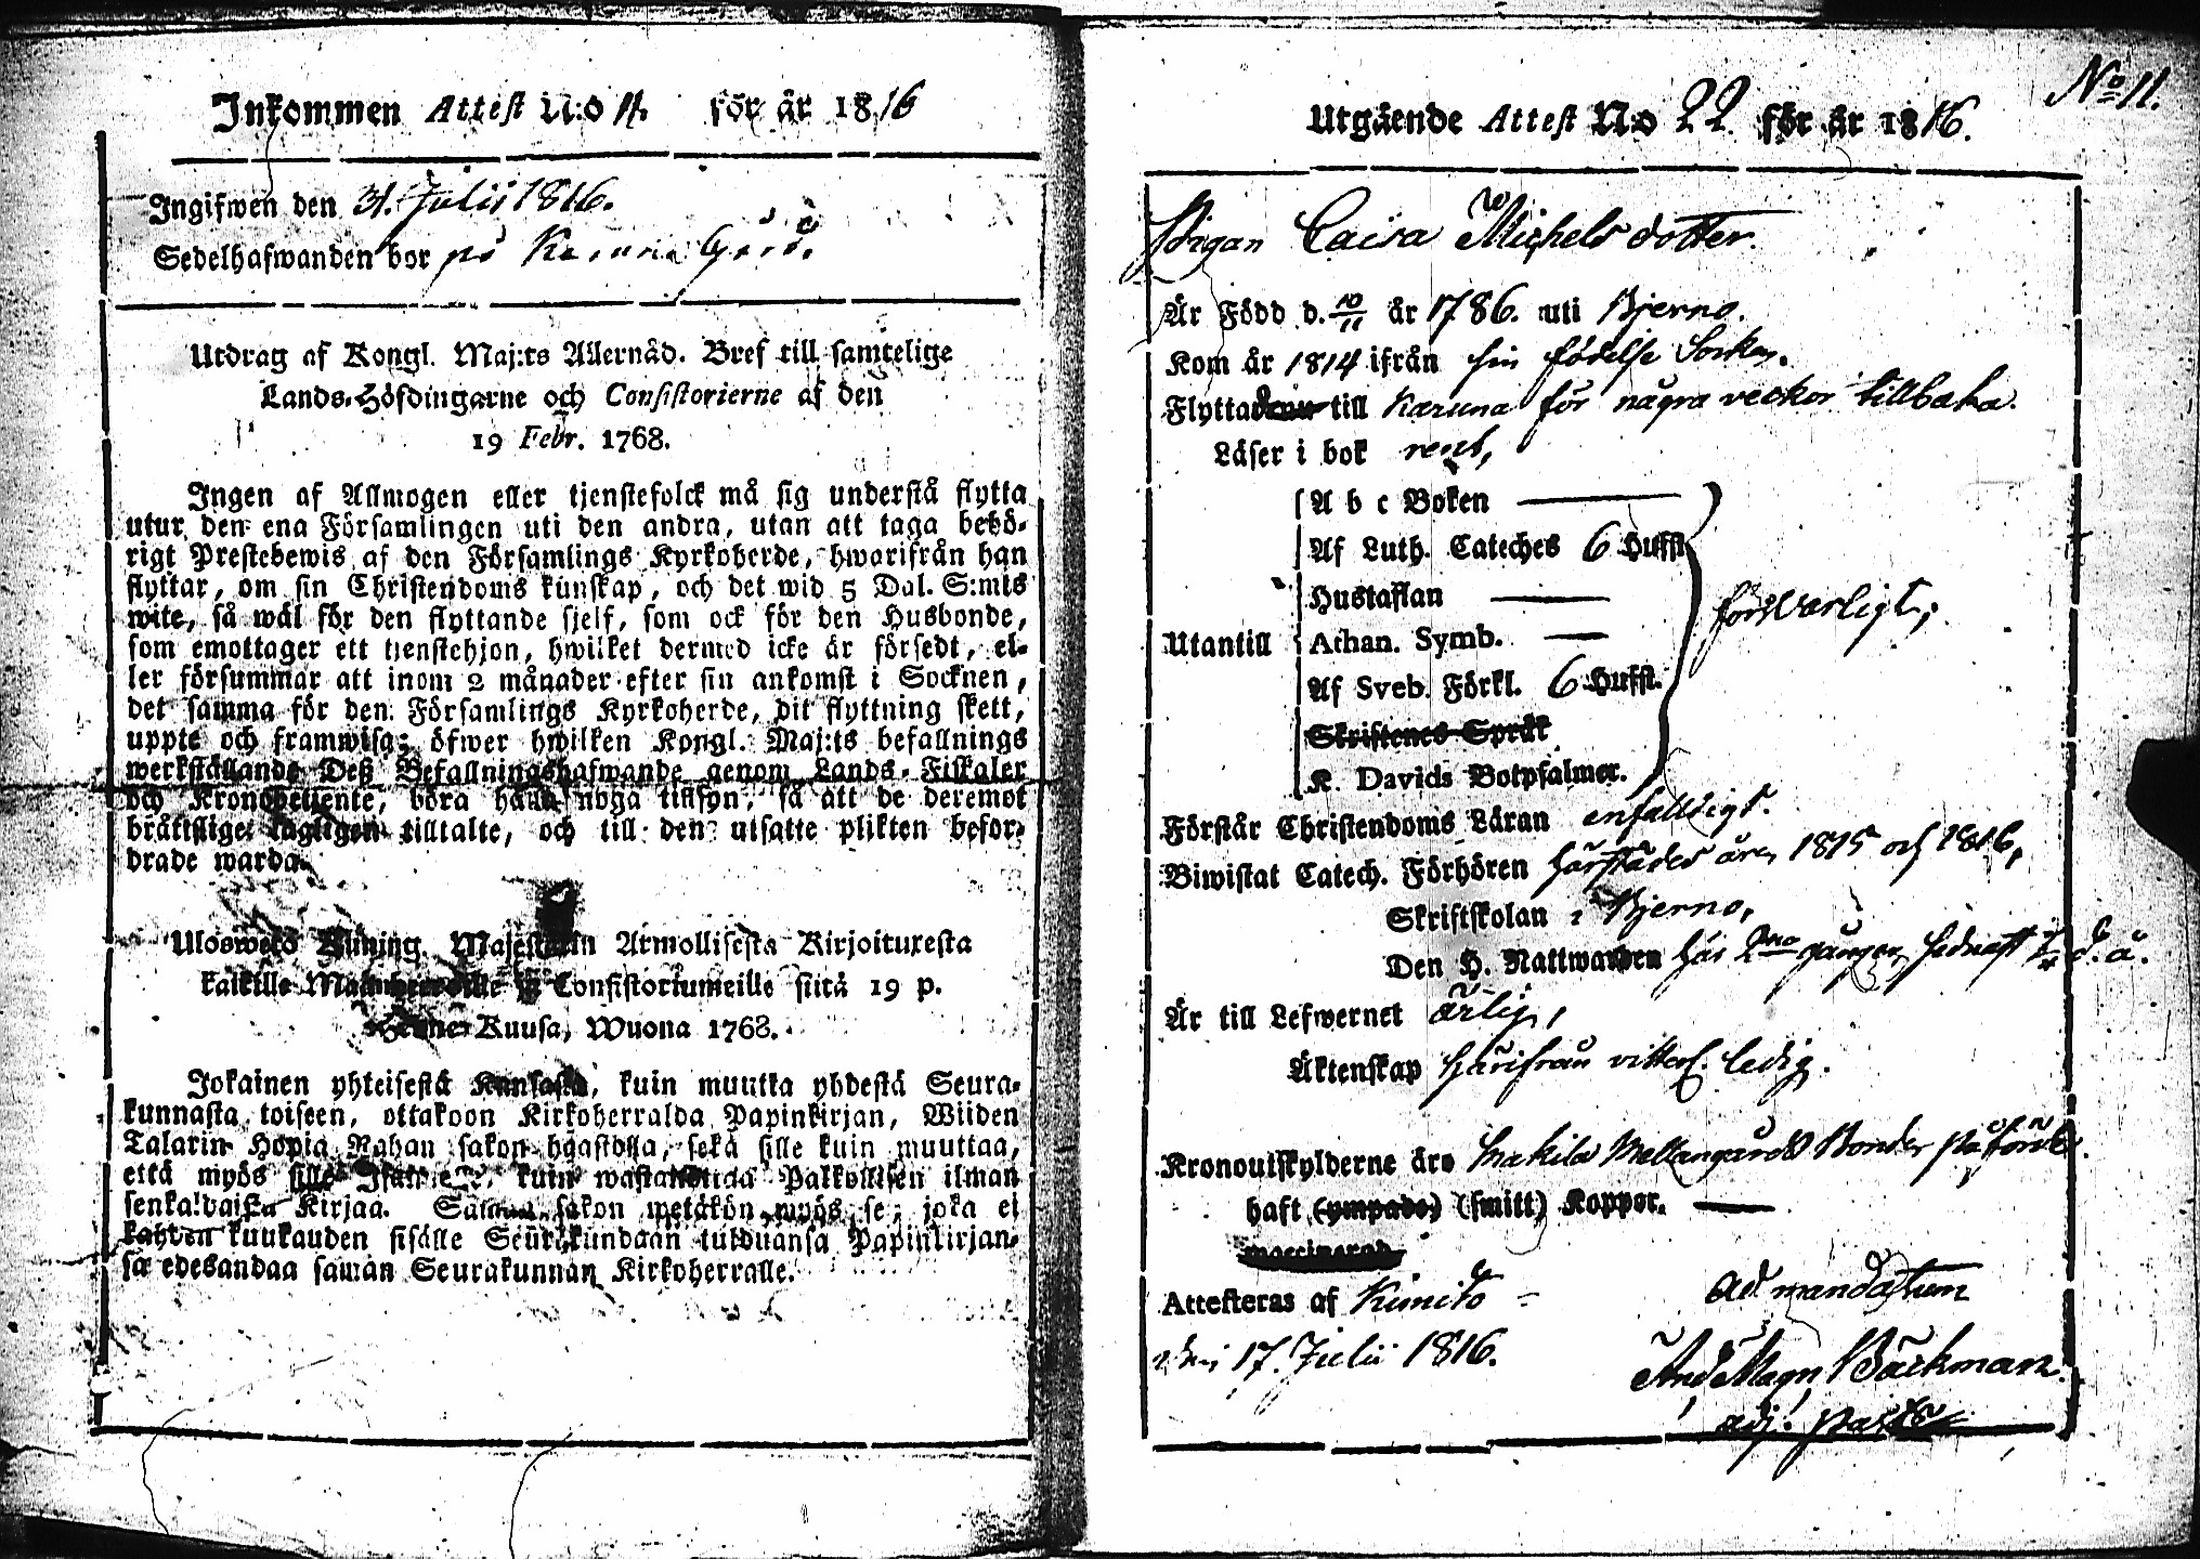 Inkommen Attest N:o 11. för år 1816
Ingifwen den 31. Julii 1816.
Sedelhafwanden bor på Karuna Gård.
Utdrag af Kongl. Maj:ts Allernåd. Bref till samtelige
Lands-Höfdingarne och Consistorierne af den
19 Febr. 1768.
Ingen af Allmogen eller tjenstefolck må sig understå flytta
utur den ena Församlingen uti den andra, utan att taga behö-
rigt Prestebewis af den Församlings Kyrkoherde, hwarifrån han
flyttar, om sin Christendoms kunskap, och det wid 5 Dal. S:mts
wite, så wäl för den flyttande sjelf, som ock för den Husbonde,
som emottager ett tjenstehjon, hwilket dermed icke är försedt, el-
ler försummar att inom 2 månader efter sin ankomst i Socknen,
det samma för den Församlings Kyrkoherde, dit flyttning skett,
uppte och framwisa; öfwer hwilken Kongl. Maj:ts befallnings
werkställande Deß Befallningshafwande genom Lands-Fiskaler
och Kronobetjente, böra hafwa noga tillsyn, så att de deremot
bråttslige lagligen tilltalte, och till den utsatte plikten befor-
drade warda.
Ulosweto Kuning. Majestetin Armollisesta Kirjoituxesta
kaikille Maanherroille ja Consistoriumeille siitä 19 p.
Kuusa, Wuona 1768.
Jokainen yhteisestä Kansasta, kuin muutta yhdestä Seura-
kunnasta toiseen, ottakoon Kirkoherralda Papinkirjan, Wiiden
Talarin Hopia Rahan sakon haastolla, sekä sille kuin muuttaa,
että myös sille Isännelle, kuin wastanottaa Palkollisen ilman
senkaldaista Kirjaa. Saman sakon wetäkön myös se, joka ei
kahden kuukauden sisälle Seurakundaan tulduansa Papinkirjan-
sa edesandaa saman Seurakunnan Kirkoherralle.
No 11.
Utgående Attest No 22 för år 1816.
Pigan Caisa Michelsdotter.
Är Född d. 10/11 år 1786. uti Bjerno.
Kom år 1814 ifrån sin födelse Socken.
Flyttade till Karuna för några veckor tillbaka.
Läser i bok rent,
A b c Boken
Af Luth. Cateches 6 Hufst.
Hustaflan
försvarligt;
Utantill Athan. Symb.
Af Sveb. Förkl. 6 Hufst.
Skriftenes Språk
K. Davids Botpsalmer.
Förstår Christendoms Läran enfalldigt.
Biwistat Catech. Förhören härstädes åren 1815 och 1816,
Skriftskolan i Bjerno,
Den H. Nattwarden här 2ne gånger, sednast d. å.
Är till Lefwernet ärlig,
Äktenskap härifrån vitterl. ledig.
Kronoutskylderne äro Makila Mellangårds Bonden påförde.
haft (ympade) (smitt) Koppor.
vaccinerad
Attesteras af Kimito
den 17. Julii 1816.
Ad mandatum
And Magn Bäckman.
adj. past.